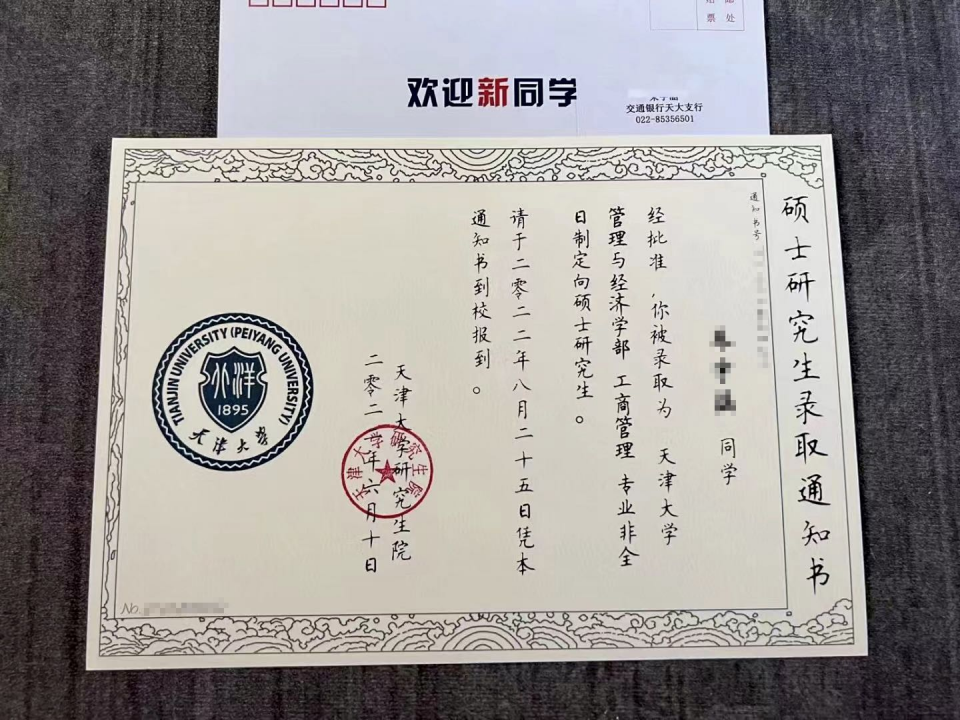 票处
欢迎新同学
交通银行天大支行
022-85356501
硕士研究生录取通知书
通知书号
同学
经批准,你被录取为 天津大学
管理与经济学部 工商管理 专业非全
日制定向硕士研究生。
请于二零二二年八月二十五日凭本
通知书到校报到。
天津大学研究生院
二零二二年六月十日
天津大学研究生院
TIANJIN UNIVERSITY (PEIYANG UNIVERSITY)
北洋
1895
天津大学
No.